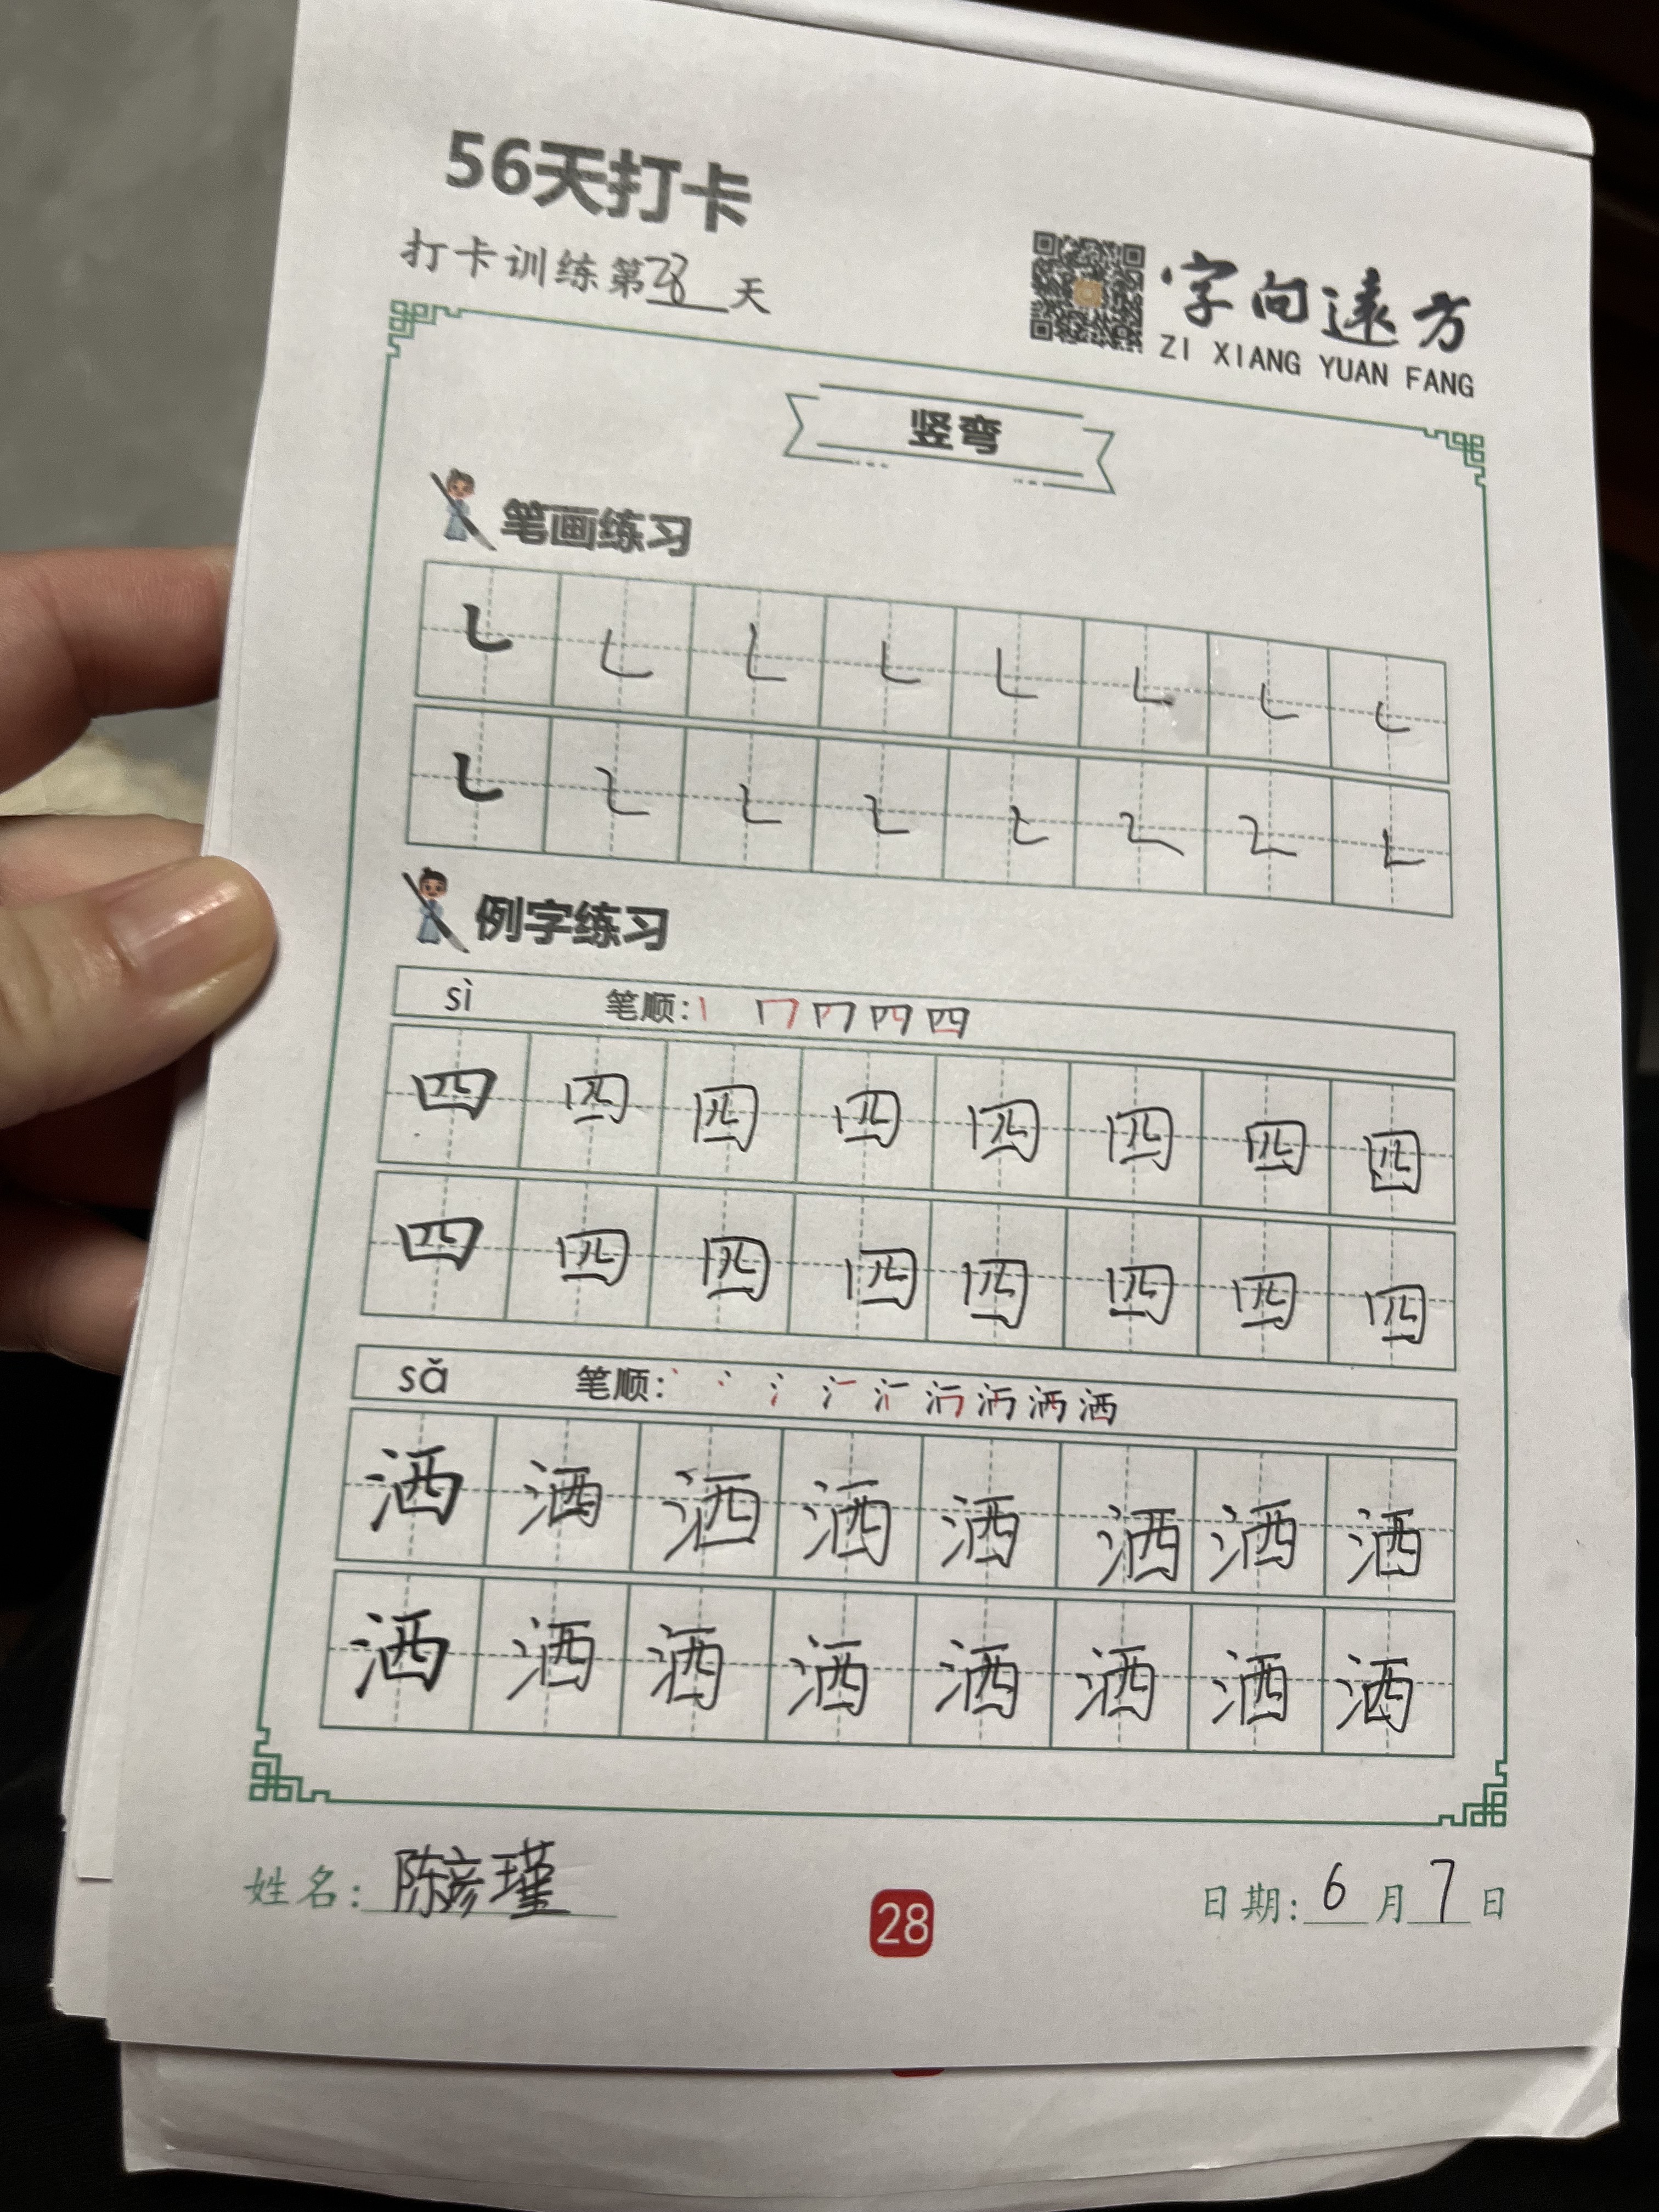 56天打卡
打卡训练第28天
字向远方
ZI XIANG YUAN FANG
竖弯
笔画练习
㇄ ㇄ ㇄ ㇄ ㇄ ㇄ ㇄ ㇄
㇄ ㇄ ㇄ ㇄ ㇄ ㇄ ㇄ ㇄
例字练习
sì 笔顺:
四 四 四 四 四 四 四 四
四 四 四 四 四 四 四 四
sǎ 笔顺:
洒 洒 洒 洒 洒 洒 洒 洒
洒 洒 洒 洒 洒 洒 洒 洒
姓名: 陈彦瑾
28
日期: 6 月 7 日